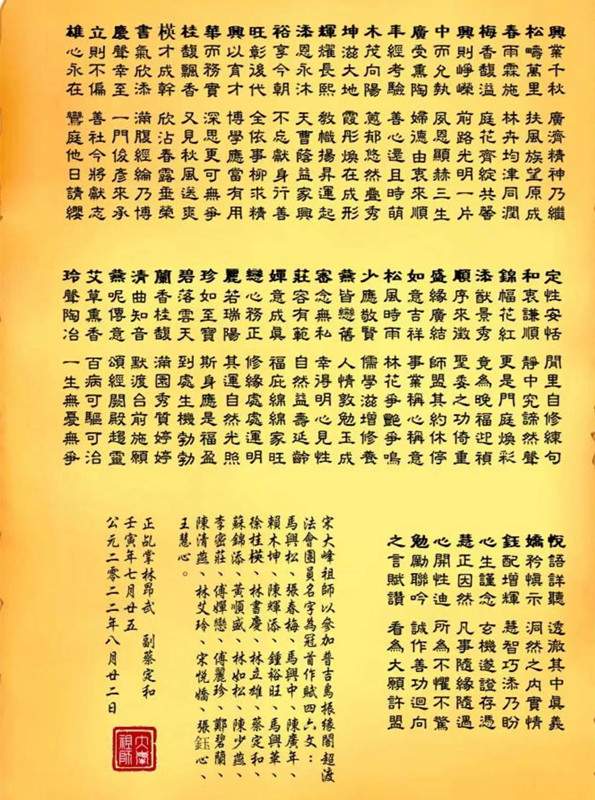 興業千秋　廣濟精神乃繼
松疇萬里　扶風族望原成
春雨霖施　林卉均津同潤
梅香馥溢　庭花齊綻共馨
興則崢嶸　前路光明一片
中而允執　夙恩顯赫三生
廣受熏陶　婦德由衷來順
年經考驗　善心還且時萌
木茂向陽　蔥郁悠然疊秀
坤滋大地　霞彤煥在成形
輝耀長熙　教幟揚昇運起
添恩永沐　天曹蔭益家興
裕享今朝　不忘獻身行善
旺彰後代　全依事柳求精
興以育才　博學應當有用
華而務實　深思更可無爭
桂馥飄香　又見秋風送爽
楧才成幹　欣沾春露垂榮
書氣欣添　滿腹經綸乃博
慶聲幸至　一門俊彥來承
立則不偏　善社今將獻志
雄心永在　鸞庭他日請纓
定性安恬　閒里自修練句
和衷謙順　靜中究諦然聲
錦幅花紅　更是門庭煥彩
添猷景秀　竟為晚福迎禎
順序來澂　聖委之功倚重
盛緣廣結　師盟其約休停
如意吉祥　事業稱心稱意
松風時雨　林花爭艷爭鳴
少應敬賢　儒學滋增修養
燕皆戀舊　人情敦勉玉成
密念無私　幸得明心見性
莊容有範　自然益壽延齡
嬋意成真　福庇綿綿家旺
戀心務正　修緣處處運明
麗若瑞陽　其運自然光照
珍如至寶　斯身應是福盈
碧落雲天　到處生機勃勃
蘭香桂馥　滿園秀質婷婷
清曲知音　默渡台前施願
燕呢傳意　頌經闕殿趨靈
艾草熏香　百病可驅可治
玲聲陶冶　一生無憂無爭
悅語詳聽　透澈其中真義
嬌矜慎示　洞然之內實情
鈺配增輝　慧智巧添乃盼
心生謹念　玄機遂證存憑
慧正因然　凡事隨緣隨遇
心開性迪　所為不懼不驚
勉勵聯吟　誠作善功迴向
之言賦讚　看為大願許盟
宋大峰祖師以參加普吉島振緣閣超渡
法會團員名字為冠首作賦四六文：
馬興松、張春梅、馬興中、陳廣年、
賴木坤、陳輝添、鍾裕旺、馬興華、
徐桂楧、林書慶、林立雄、蔡定和、
蘇錦添、黃順盛、林如松、陳少燕、
李密莊、傅嬋戀、傅麗珍、鄭碧蘭、
陳清燕、林艾玲、宋悅嬌、張鈺心、
王慧心。
正乩掌林昂武　副蔡定和
壬寅年七月廿五
公元二零二二年八月廿二日
大峯
祖師